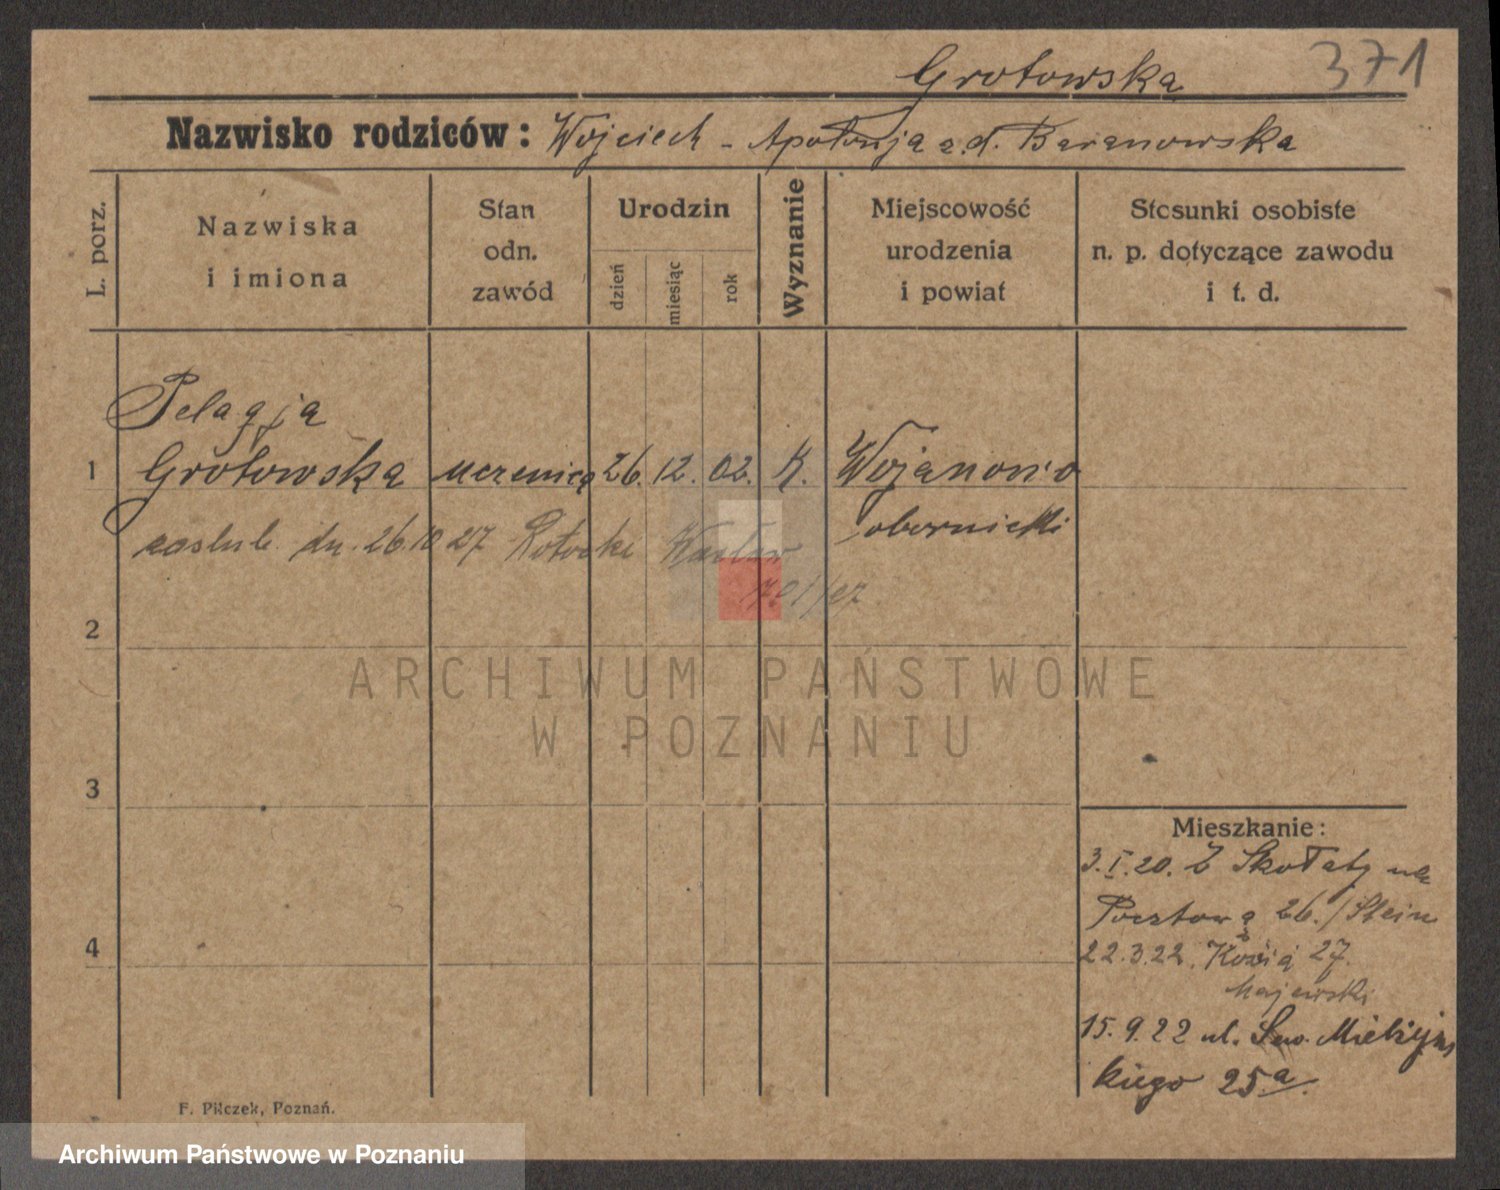 371
Grotowska
Nazwisko rodziców: Wojciech - Apolonja z.d. Baranowska
L. porz.
Nazwiska
i imiona
Stan
odn.
zawód
Urodzin
dzień
miesiąc
rok
Wyznanie
Miejscowość
urodzenia
i powiat
Stosunki osobiste
n. p. dotyczące zawodu
i t. d.
Pelagja
1 Grotowska uczenica 26. 12. 02. K. Wojanowo
obornicki
zaślub. dn. 26.10 27 Wacław
2
3
4
ARCHIWUM PAŃSTWOWE
W POZNANIU
Mieszkanie:
3.I.20. Z Skołaty na
Pocztową 26./Stein
22.3.22. Kozią 27.
Majewski
15.9.22 ul. Sew. Mielżyńs
kiego 25a.
F. Pilczek, Poznań.
Archiwum Państwowe w Poznaniu